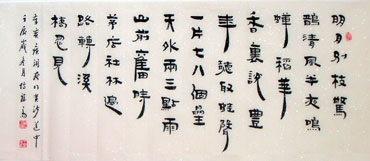 明月別枝驚
鵲清風半夜鳴
蟬稻華
香裏說豐
年聽取蛙聲
一片七八個星
天外兩三點雨
山前舊時
茅店社林邊
路轉溪
橋忽見
辛棄疾詞夜行黃沙道中